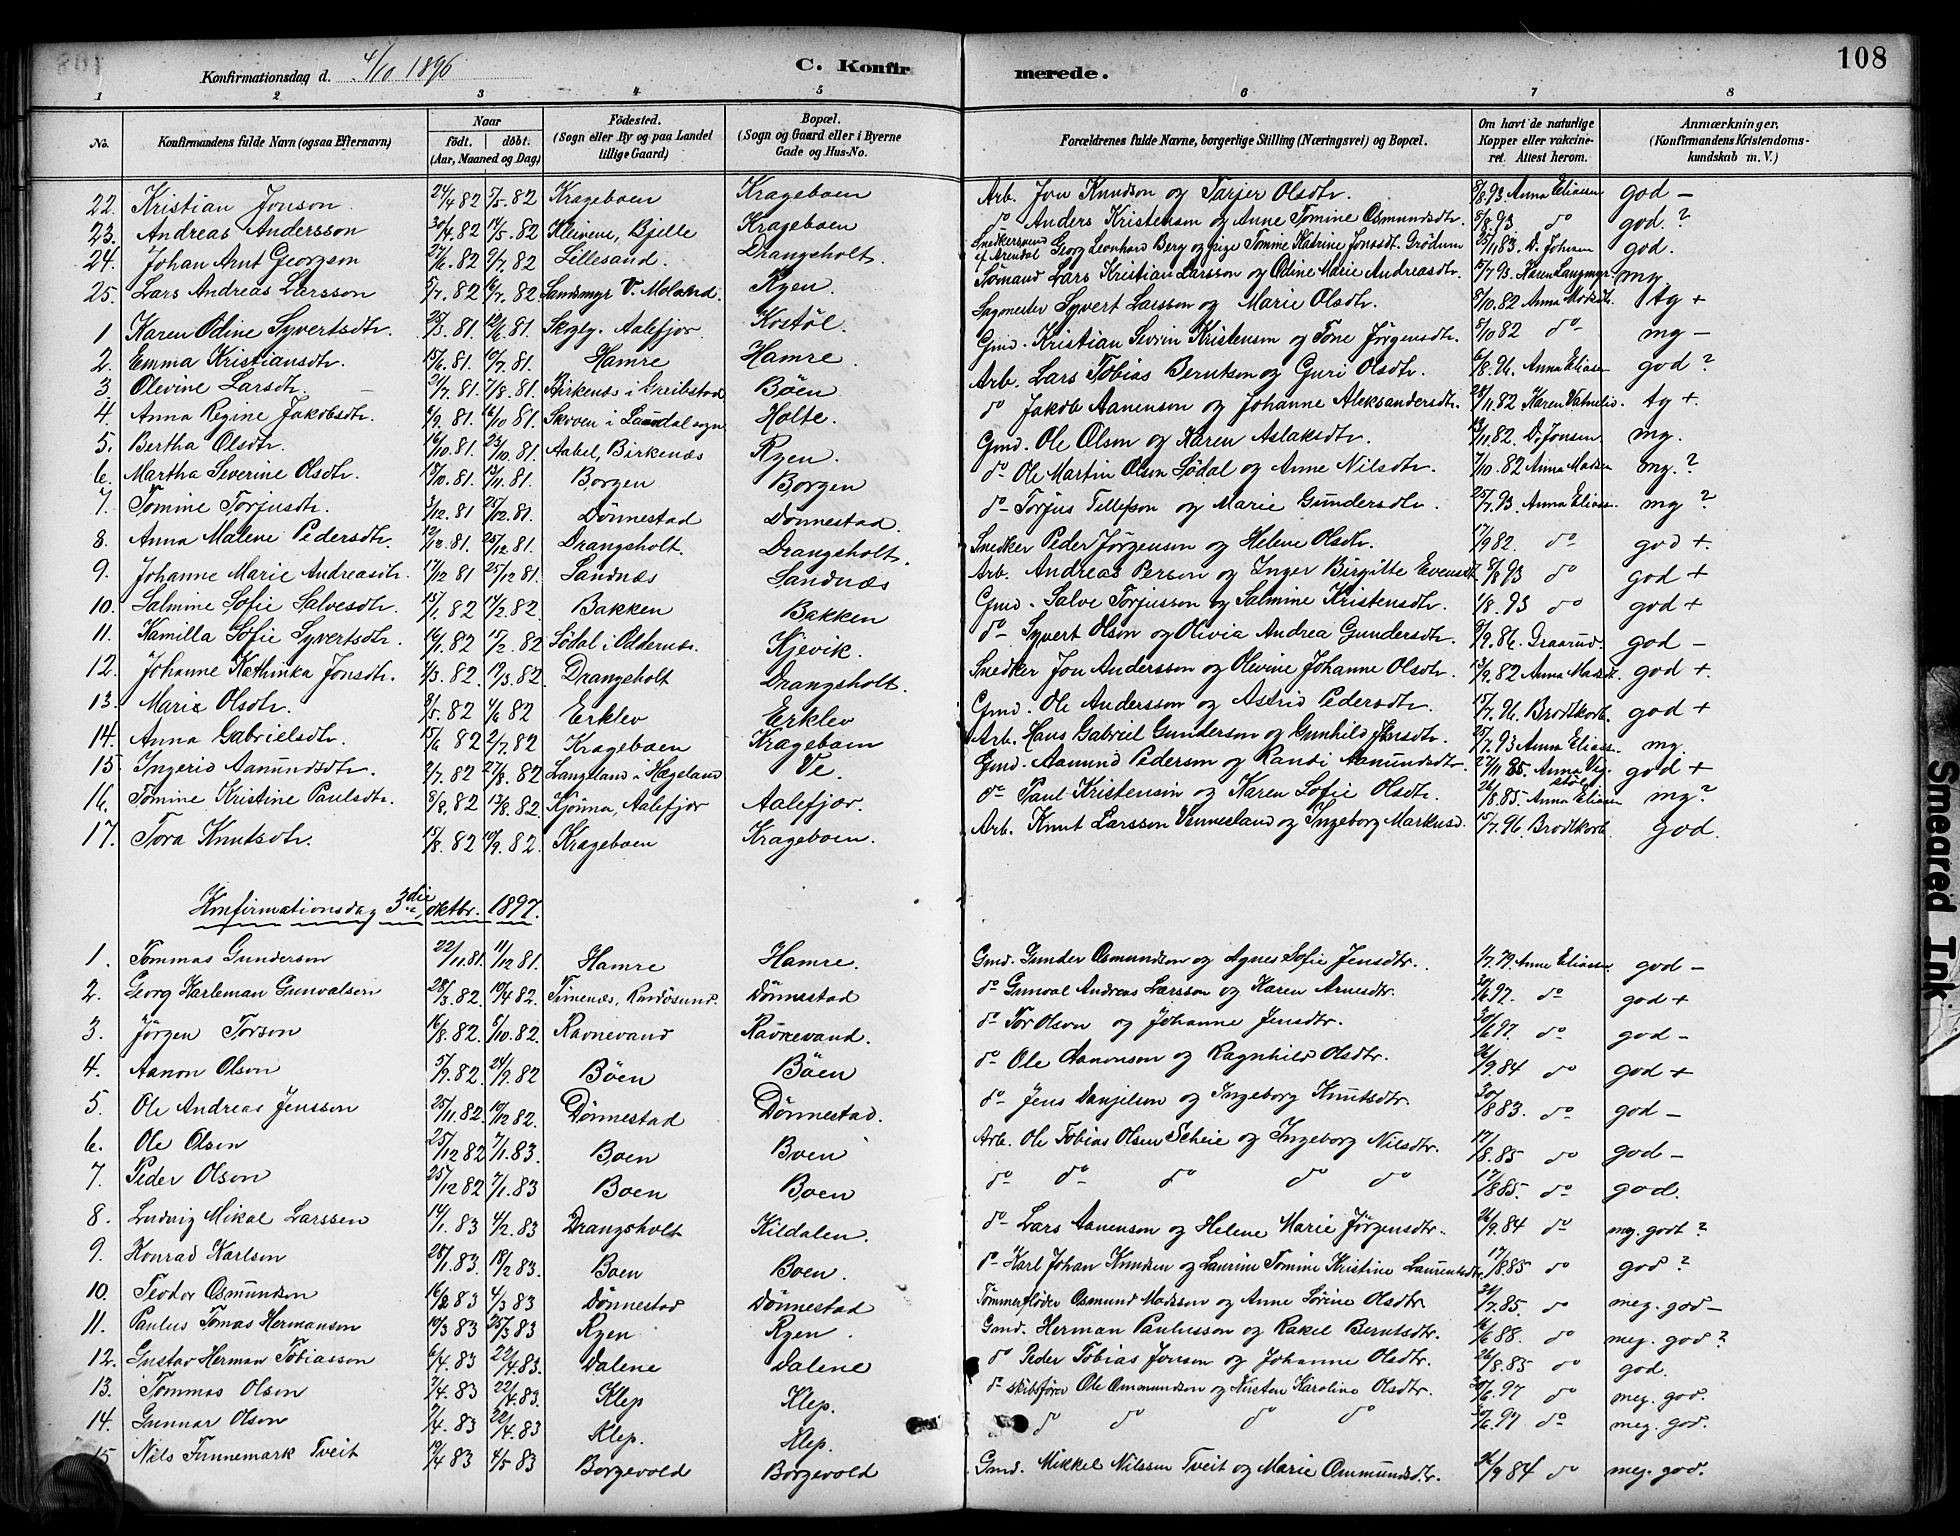 108
Konfirmationsdag d. 4/10 1896 C. Konfirmerede.
1 2 3 4 5 6 7 8
No. Konfirmandens fulde Navn (ogsaa Efternavn) Naar født. døbt. (Aar, Maaned og Dag) Fødested. (Sogn eller By og paa Landet tillige Gaard) Bopæl. (Sogn og Gaard eller i Byerne Gade og Hus-No. Forældrenes fulde Navne, borgerlige Stilling (Næringsvei) og Bopæl. Om havt de naturlige Kopper eller vakcineret. Attest herom. Anmærkninger. (Konfirmandens Kristendomskundskab m. V.)
22. Kristian Jonson. 24/4 82 7/5. 82 Krageboen Krageboen Arb. Jon Knudson og Tarjer Olsdtr. 8/8.93 Anna Eliassen god -
23. Andreas Andersson 30/4. 82 14/5. 82 Kleivene, Bjelle Krageboen do Anders Kristenson og Anne Tomine Osmundsdtr. 8/8.93 do god. ?
24. Johan Arnt Georgson 27/6. 82 9/7. 82 Lillesand. Drangsholt. Snedkersvend af Arendal Georg Leonhard Berg og pige Tomine Katrine Jonsdt. Grödum 25/11 83. D. Johnsen god.
25. Lars Andreas Larsson 5/7. 82 16/7. 82 Sandsmyr V. Moland. Ryen. Sömand Lars Kristian Larsson og Odine Marie Andreasdtr. 15/7 93. Karen Langmyr mg
1 Karen Odine Syvertsdtr. 25/3. 81 12/6 81. Aalefjær Kostöl. Sagmester Syvert Larsson og Marie Olsdtr. 8/10. 82 Anna Madsdt. tg +
2. Emma Kristiansdtr. 15/6. 81. 10/7. 81. Hamre Hamre Gmd. Kristian Severin Kristenson og Tone Jörgensdtr. 8/10 82 do mg -
3 Olevine Larsdtr. 21/7. 81 7/8. 81. Birkenæs i Greibstad Böen Arb. Lars Tobias Berntson og Guri Olsdtr. 6/8. 96. Anna Eliasen god ?
4 Anna Regine Jakobsdtr. 6/9. 81. 16/10 81. Skoven i Laudal sogn. Holte. do Jakob Aanenson og Johanne Aleksandersdtr. 28/11. 82 Karen Vatnelid. tg +.
5. Bertha Olsdtr. 16/10 81. 23/10. 81. Aabel, Birkenæs Ryen. Gmd. Ole Olson og Karen Aslaksdtr. 13/11 82. D. Jonsen. mg.
6 Martha Severine Olsdtr. 15/10. 81. 13/11. 81. Borgen Borgen do Ole Martin Olson Södal og Anne Nilsdtr. 7/10. 82 Anna Madsen mg. ?
7. Tomine Torjusdtr. 3/12. 81 25/12. 81. Dönnestad Dönnestad. do Torjus Tellefson og Marie Gundersdtr. 25/7. 93. Anna Eliass. mg ?
8. Anna Malene Pedersdtr. 12/12. 81. 25/12 81. Drangsholt. Drangsholt. Snedker Peder Jörgenson og Helene Olsdtr. 17/9 82. do god +.
9. Johanne Marie Andreasdtr. 17/12 81 25/12 81. Sandnæs Sandnæs Arb. Andreas Person og Inger Birgitte Evensdt. 8/8 93 do god +
10. Salmine Sofie Salvesdtr. 15/1. 82 14/2. 82 Bakken Bakken Gmd. Salve Torjusson og Salmine Kristensdtr. 1/8. 93 do god +
11. Kamilla Sofie Syvertsdtr. 16/1. 82 15/2. 82 Södal i Oddernes. Kjevik. do Syvert Olson og Olivia Andrea Gundersdtr. 9/9. 86. Graarud. god -
12. Johanne Kathinka Jonsdtr. 4/3. 82 19/3. 82 Drangsholt Drangsholt. Snedker Jon Andersson og Olevine Johanne Olsdtr. 13/9. 82 Anna Madsdt. god +
13. Marie Olsdtr. 31/5. 82 4/6 82 Erklev Erklev Gmd. Ole Andersson og Astrid Pedersdtr. 15/7. 96. Brodtkorb. god +
14. Anna Gabrielsdtr. 15/6 82 2/7. 82 Krageboen Krageboen Arb. Hans Gabriel Gunderson og Gunhild Jonsdtr. 25/7. 93 Anna Eliass. mg.
15. Ingerid Aanundsdtr. 9/7. 82 27/8. 82 Langeland i Hægeland Ve. Gmd. Aanund Pederson og Randi Aanundsdtr. 27/11 85. Anna Vigstöl. god +
16. Tomine Kristine Paulsdtr. 8/8. 82 13/8. 82 Kjönna, Aalefjær Aalefjær. do Paul Kristenson og Karen Sofie Olsdtr. 26/8. 85. Anna Eliasen mg ?
17. Tora Knutsdtr. 15/8. 82 10/9. 82. Krageboen Krageboen. Arb. Knut Larsson Vennesland og Ingeborg Markusd. 15/7. 96. Brodtkorb. god.
Konfirmationsdag 3die oktbr. 1897.
1. Tommas Gunderson 22/11. 81. 11/12 81. Hamre Hamre. Gmd. Gunder Osmundson og Agnes Sofie Jensdtr. 1/7. 79. Anne Eliassen god -
2. Georg Karleman Gunvalsen 28/3. 82. 10/4 82. Timenæs, Randösund. Dönnestad do Gunval Andreas Larsson og Karen Arnesdtr. 30/6 97. do god +
3. Jörgen Torson 16/8. 82. 8/10. 82. Ravnevand Ravnevand. do Tor Olson og Johanne Jensdtr. 30/6 97 do god -
4. Aanon Olson 5/9. 82. 24/9. 82 Böen Böen do Ole Aanonson og Ragnhild Olsdtr. 26/9. 84 do god +
5. Ole Andreas Jensson 25/11. 82. 10/12 82. Dönnestad Dönnestad. do Jens Danjelson og Ingeborg Knutsdtr. 83. do god -
6. Ole Olsen 25/12 82 7/1. 83. Boen Boen Arb. Ole Tobias Olsen Scheie og Ingeborg Nilsdtr. 17/8. 85 do god -
7. Peder Olson 25/12 82 7/1. 83 Boen Boen do do do do do 17/8 85. do god.
8. Ludvig Mikal Larssen 14/1. 83 4/2. 83 Drangsholt Kildalen. do Lars Aanenson og Helene Marie Jörgensdtr. 26/9. 84 do meg. godt ?
9. Konrad Karlsen 28/1. 83. 18/2 83. Boen Boen. do Karl Johan Knudsen og Laurine Tomine Kristine Laurentsdtr. 17/8. 85 do god ?
10. Teodor Osmundsen 16/2 83 4/3 83 Dönnestad Dönnestad Tömmerfløder Osmund Madsson og Anne Sörine Olsdtr. 24/7. 85. do meg. god -
11. Paulus Tomas Hermansen 10/3 83 25/3 83 Ryen Ryen. Gmd. Herman Paulusson og Rakel Berntsdtr. 16/6 88. do meg. god ?
12. Gustav Herman Tobiasson 6/4. 83 22/4. 83. Dalene Dalene do Peder Tobias Jonson og Johanne Olsdtr. 26/8. 85 do god.
13. Tommas Olsen 7/4. 83 22/4. 83. Klep Klep. do skibsfører Ole Ommundson og Kirsten Karoline Olsdtr. 30/6. 97 do meg. god.
14. Gunnar Olson 7/4. 83 22/4. 83 Klep. Klep. do do do do 30/6. 97 do meg. god.
15 Nils Finnemark Tveit 19/4 83 4/5 83 Borgevold Borgevold Gmd. Mikkel Nilssen Tveit og Marie Ommundsdtr. 26/9 84 do meg. god.
Smeared Ink